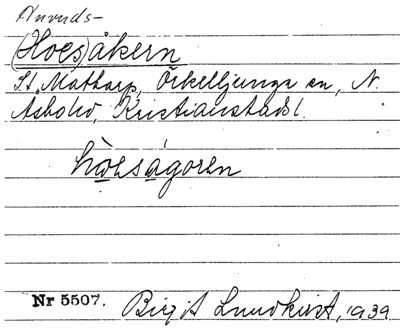 Huvuds-
(Hoes)åkern
St. Mattarp, Örkelljunga sn, N.
Åsbohd, Kristianstadsl.
hòeságoren
Nr 5507.
Birgit Lundkvist, 1939